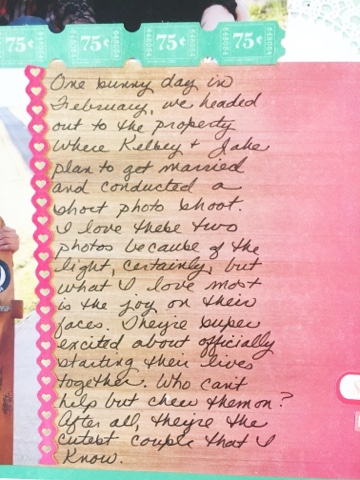 75¢ 75¢ 75¢ 75¢
One sunny day in
February, we headed
out to the property
where Kelsey + Jake
plan to get married
and conducted a
short photo shoot.
I love these two
photos because of the
light, certainly, but
what I love most
is the joy on their
faces. They're super
excited about officially
starting their lives
together. Who can't
help but cheer them on?
After all, they're the
cutest couple that I
know.